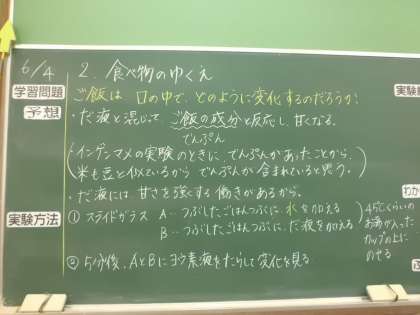 6/4
2. 食べ物のゆくえ
学習問題
ご飯は、口の中で、どのように変化するのだろうか?
予想
・だ液と混じって、ご飯の成分と反応し、甘くなる。
でんぷん
(インゲンマメの実験のときに、でんぷんがあったことから、
米も豆と似ているから でんぷんが含まれていると思う。)
・だ液には 甘さを強くする働きがあるから。
実験方法
① スライドガラス A‥つぶしたごはんつぶに、水を加える
B‥つぶしたごはんつぶに、だ液を加える
45℃くらいの
お湯が入った
カップの上に
のせる
② 5分後、AとBにヨウ素液をたらして変化を見る
実験
わか